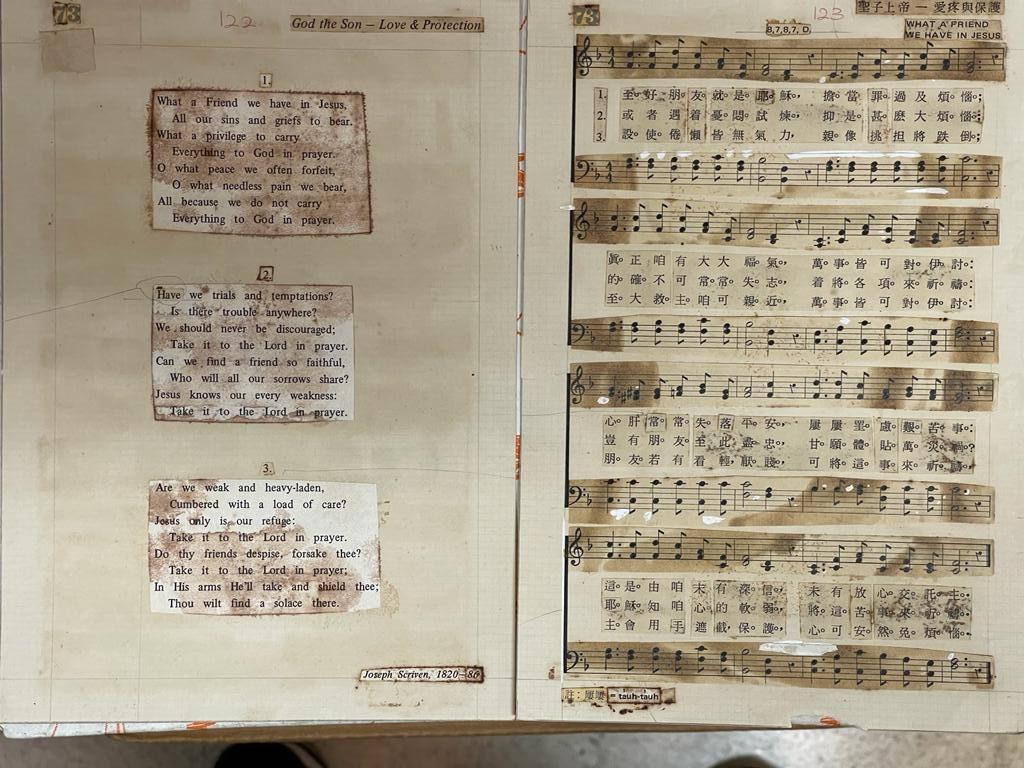 73
122
God the Son — Love & Protection
1.
What a Friend we have in Jesus,
All our sins and griefs to bear.
What a privilege to carry
Everything to God in prayer.
O what peace we often forfeit,
O what needless pain we bear,
All because we do not carry
Everything to God in prayer.
2.
Have we trials and temptations?
Is there trouble anywhere?
We should never be discouraged;
Take it to the Lord in prayer.
Can we find a friend so faithful,
Who will all our sorrows share?
Jesus knows our every weakness:
Take it to the Lord in prayer.
3.
Are we weak and heavy-laden,
Cumbered with a load of care?
Jesus only is our refuge:
Take it to the Lord in prayer.
Do thy friends despise, forsake thee?
Take it to the Lord in prayer;
In His arms He'll take and shield thee;
Thou wilt find a solace there.
Joseph Scriven, 1820—86
73
123
聖子上帝 — 愛疼與保護
8,7,8,7, D.
WHAT A FRIEND
WE HAVE IN JESUS
1. 至。好。朋。友。就。是。耶。穌。, 擔。當 罪。過 及 煩 惱。;
2. 或 者 遇 着 憂 悶 試 煉。, 抑 是。甚 麽 大 煩 惱。;
3. 設。使。倦 懶 皆 無 氣 力, 親。像 挑 担 將 跌 倒。;
眞。正 咱 有 大 大 福 氣。, 萬。事 皆 可 對。伊 討。:
的。確 不 可 常。常。失 志。, 着 將 各 項。來 祈 禱。:
至。大 救。主 咱 可 親 近。, 萬。事 皆 可 對。伊 討。:
心。肝 常。常。失。落 平。安。, 屢 屢 罣。慮。艱 苦。事。:
豈 有 朋。友 至 此 盡 忠。, 甘。願 體 貼 萬。災
朋。友 若 有 看 輕。厭 賤, 可 將 這。事 來。祈。禱。:
這。是。由 咱 未 有 深。信。, 未 有 放 心。交。託。主。
耶。穌。知 咱 心。的 軟 弱。, 將。這 苦 來。祈 禱。
主。會 用 手 遮 截 保。護。, 心。可 安。然 免。煩 惱。
註: 屢屢 = tauh-tauh